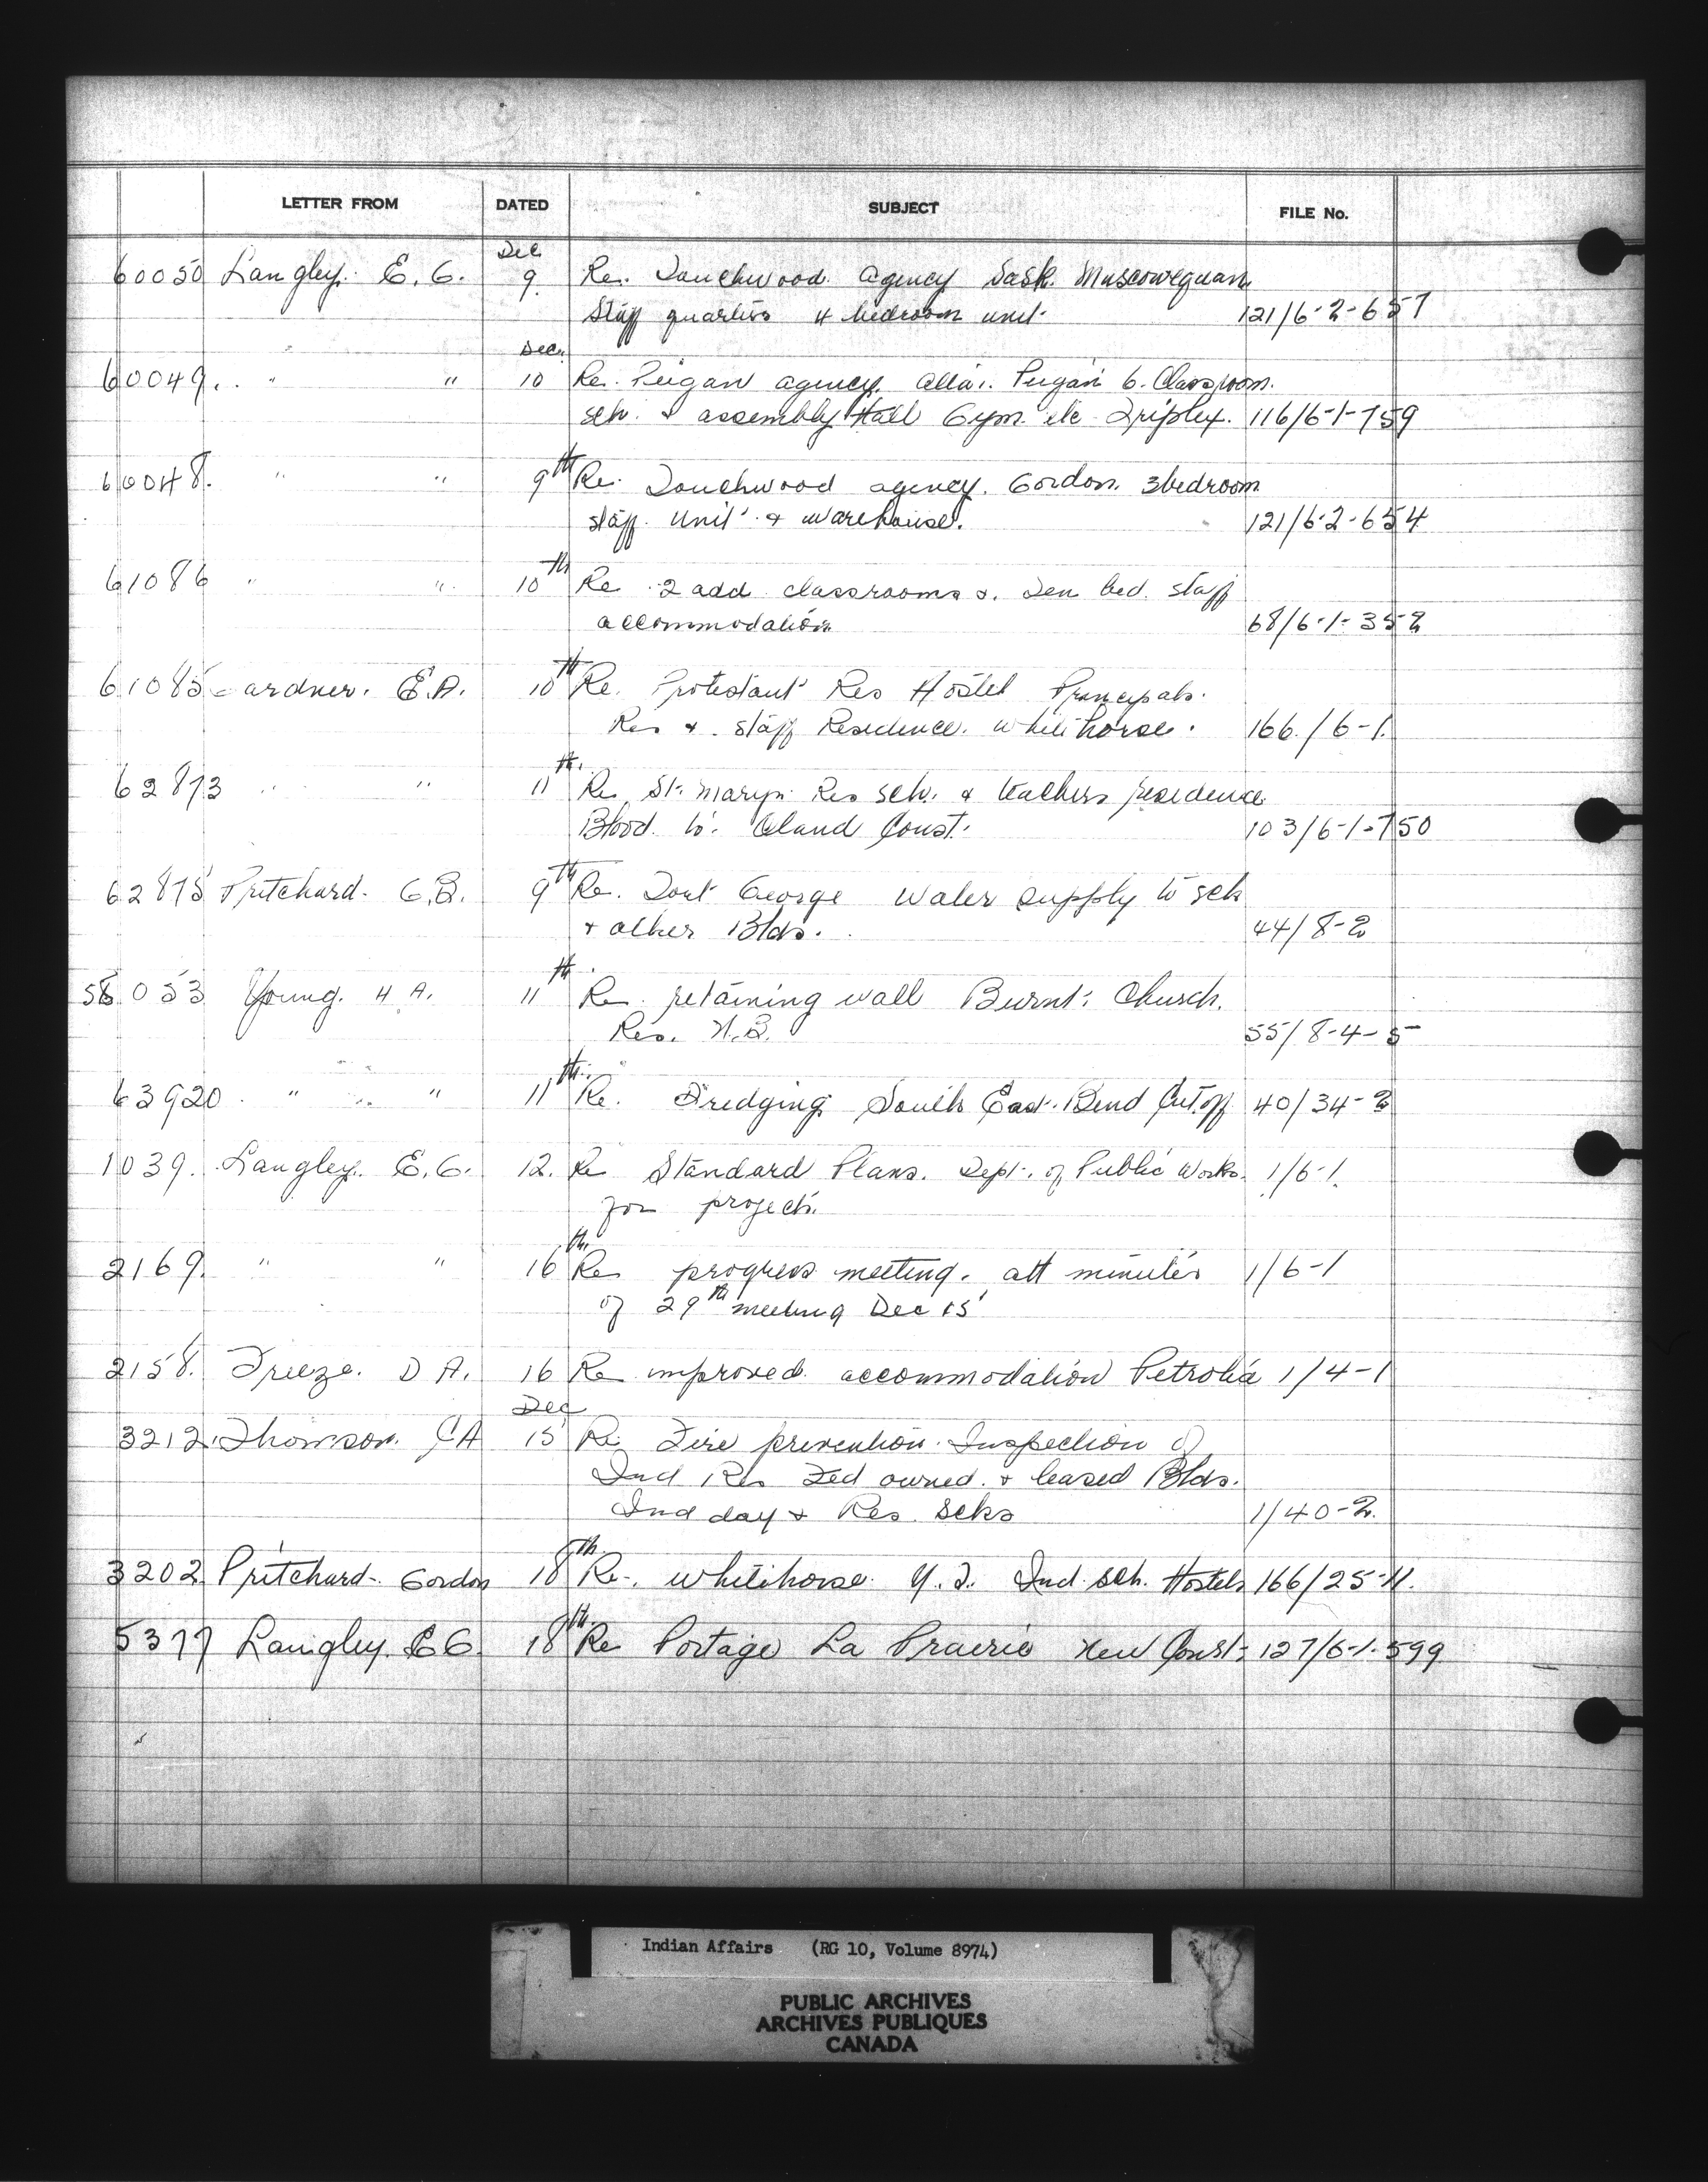 LETTER FROM DATED SUBJECT FILE No.
Dec
60050 Langley. E. G. 9. Re. Touchwood agency Sask. Muscowequan
Staff quarters 4 bedroom unit. 121/6-2-657
Dec.
60049. " " 10 Re. Peigan agency. Alta. Peigan 6. Classroom.
sch. & assembly Hall Gym. etc Triplex. 116/6-1-759
60048. " " 9th Re. Touchwood agency. Gordon. 3 bedroom
staff. Unit & warehouse. 121/6-2-654
61086 " " 10th Re 2 add classrooms &. Ten bed. staff
accommodation 68/6-1-352
61085 Gardner. E.A. 10th Re. Protestant Res Hostel Principals.
Res & staff Residence. Whitehorse. 166/6-1.
62873 " " 11th. Re St. Marys Res sch. & teachers residence
Blood to. Oland Const. 103/6-1-750
62875 Pritchard. G.B. 9th Re. Fort George water supply to sch
& other Blds. 44/8-2
58053 Young. H A. 11th Re. retaining wall Burnt Church.
Res. N.B. 55/8-4-5
63920 " " 11th. Re. Dredging South East. Bend Cut off 40/34-2
1039. Langley. E.G. 12. Re Standard Plans. Dept. of Public Works. 1/6-1.
for project.
2169. " " 16th Re progress meeting. att minutes 1/6-1
of 29th meeting Dec 15
2158. Freeze. D A. 16 Re improved accommodation Petrolia 1/4-1
Dec
3212. Thomson. C A 15 Re Fire prevention. Inspection of
Ind Res Fed owned. & leased Blds.
Ind day & Res. Schs 1/40-2.
3202 Pritchard. Gordon 18th Re. Whitehorse Y.T. Ind. sch. Hostels 166/25-11.
5377 Langley. E G. 18th. Re Portage La Prairie New Const. 127/6-1-599
Indian Affairs (RG 10, Volume 8974)
PUBLIC ARCHIVES
ARCHIVES PUBLIQUES
CANADA